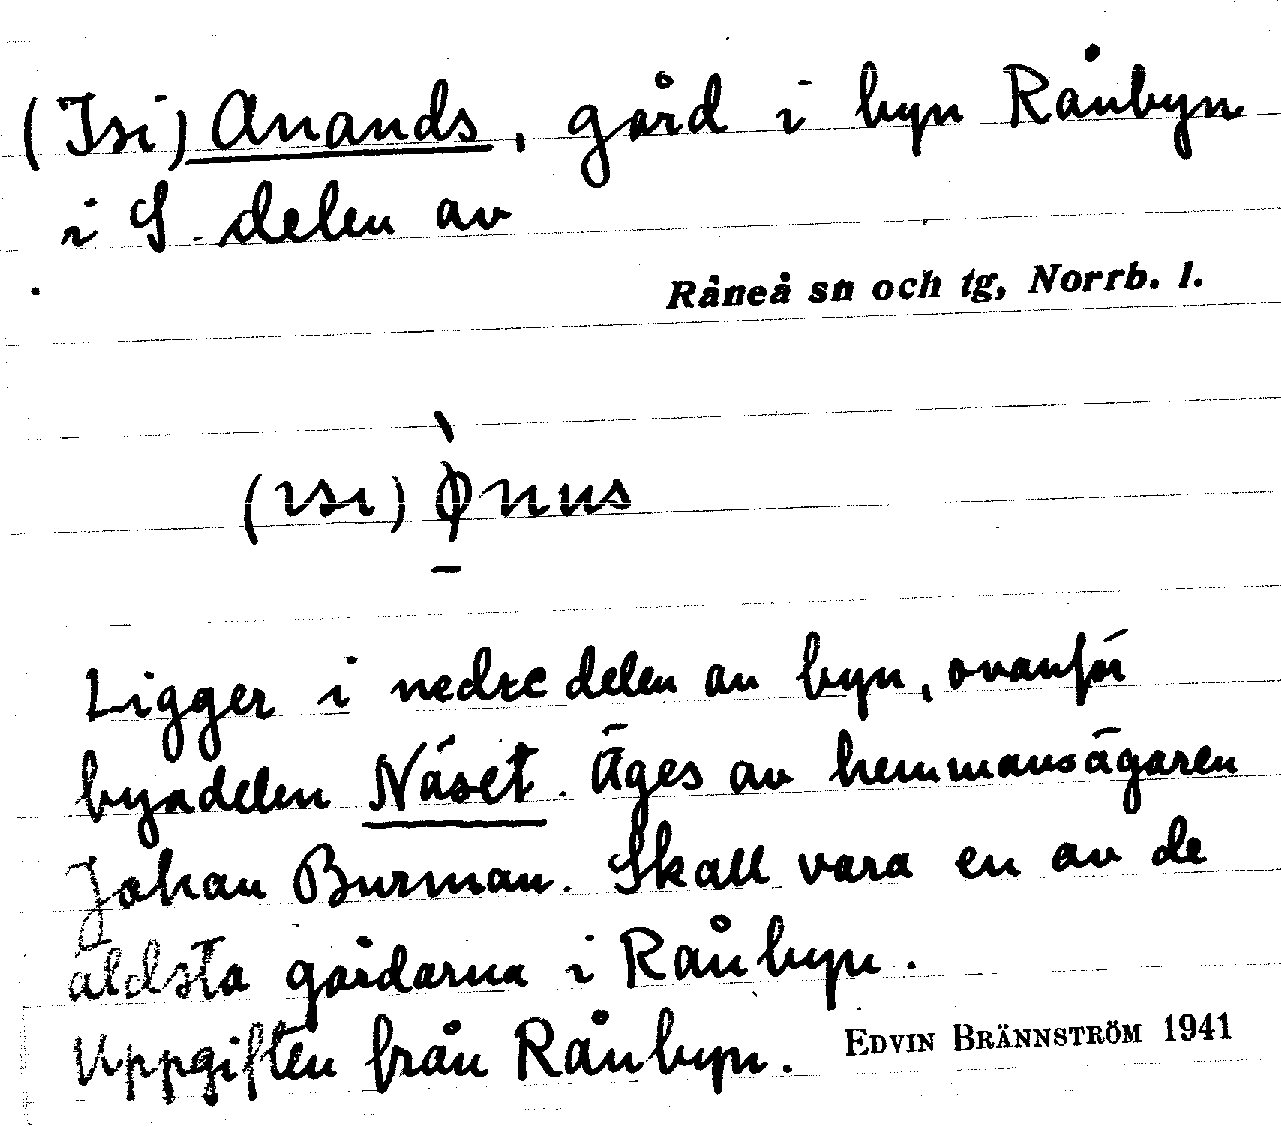 (Isi) Anands, gård i byn Rånbyn
i S. delen av
Råneå sn och tg, Norrb. l.
(ɪsɪ)
Ligger i nedre delen av byn, ovanför
byadelen Näset. Äges av hemmansägaren
Johan Burman. Skall vara en av de
äldsta gårdarna i Rånbyn.
Uppgiften från Rånbyn. EDVIN BRÄNNSTRÖM 1941